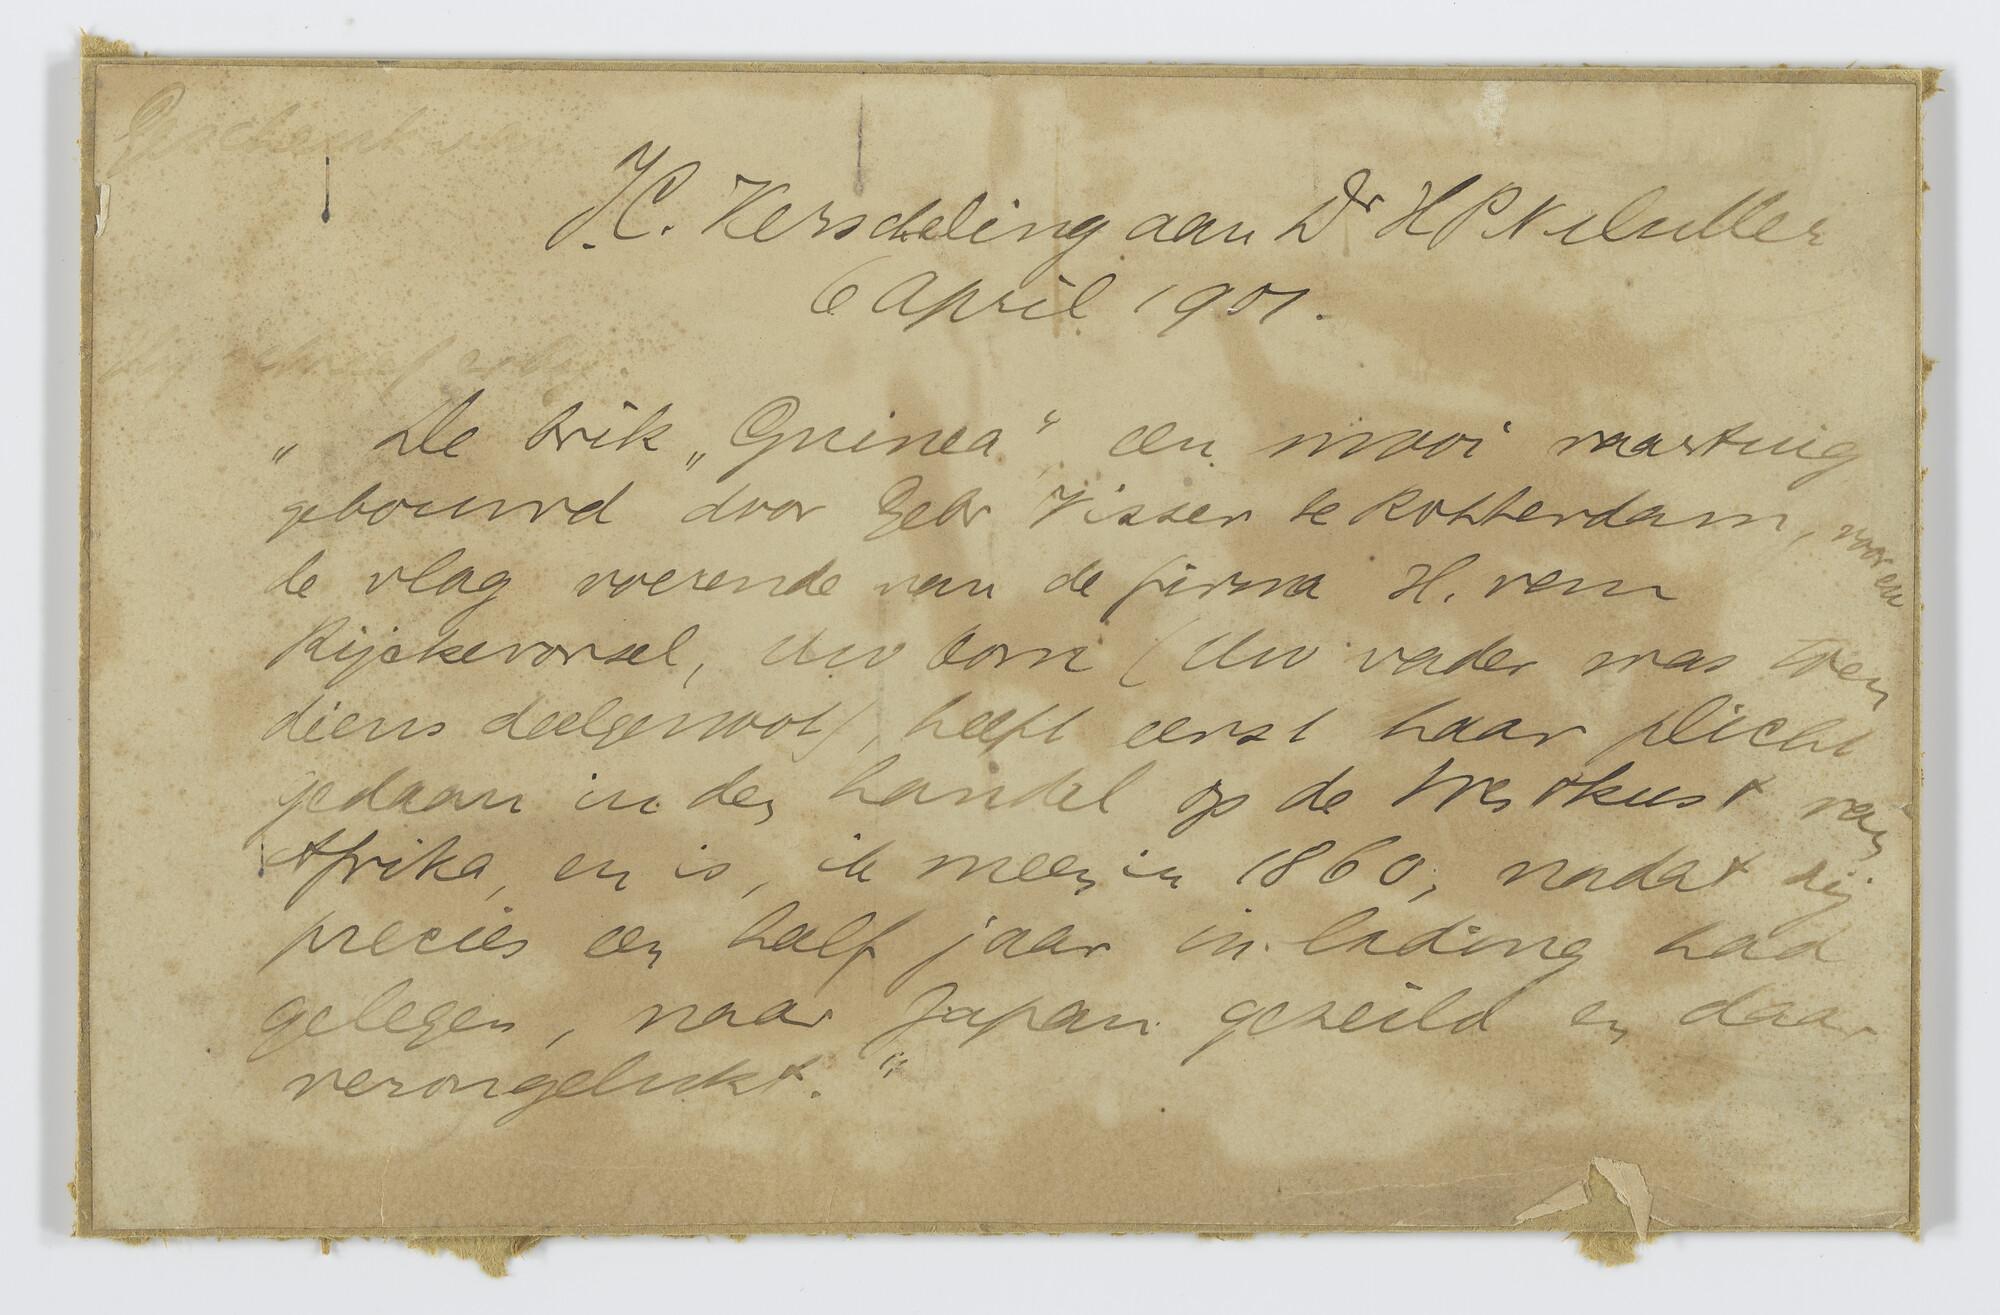 Geschenk van
H.C. Kerscheling aan Dr HPN Muller
6 April 1901.
Hij schreef
„ De brik „Guinea“, een mooi vaartuig
gebouwd door Gebr Visser te Rotterdam, voor en
de vlag voerende van de firma H. van
Rijckevorsel, Uw oom (Uw vader was toen
diens deelgenoot), heeft eerst haar plicht
gedaan in den handel op de Westkust van
Afrika, en is, ik meen in 1860, nadat zij
precies een half jaar in lading had
gelegen, naar Japan gezeild en daar
verongelukt.“